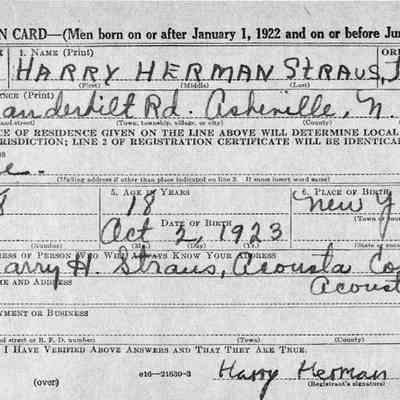 N CARD—(Men born on or after January 1, 1922 and on or before Ju
1. NAME (Print) OR
HARRY HERMAN STRAUS, J
(First) (Middle) (Last)
NCE (Print)
anderbilt Rd. Asheville, N.
and street) (Town, township, village, or city) (County)
CE OF RESIDENCE GIVEN ON THE LINE ABOVE WILL DETERMINE LOCAL
RISDICTION; LINE 2 OF REGISTRATION CERTIFICATE WILL BE IDENTICA
(Mailing address if other than place indicated on line 2. If same insert word same)
5. AGE IN YEARS 6. PLACE OF BIRTH
18 New Y
DATE OF BIRTH (Town or
Oct 2, 1923
(Number) (Mo.) (Day) (Yr.) (State or
ESS OF PERSON WHO WILL ALWAYS KNOW YOUR ADDRESS
arry H. Straus, Acousta Co
ME AND ADDRESS Acoust
PLOYMENT OR BUSINESS
nd street or R. F. D. number) (Town) (County)
I HAVE VERIFIED ABOVE ANSWERS AND THAT THEY ARE TRUE.
(over) e16—21630-3 Harry Herman
(Registrant's signature)